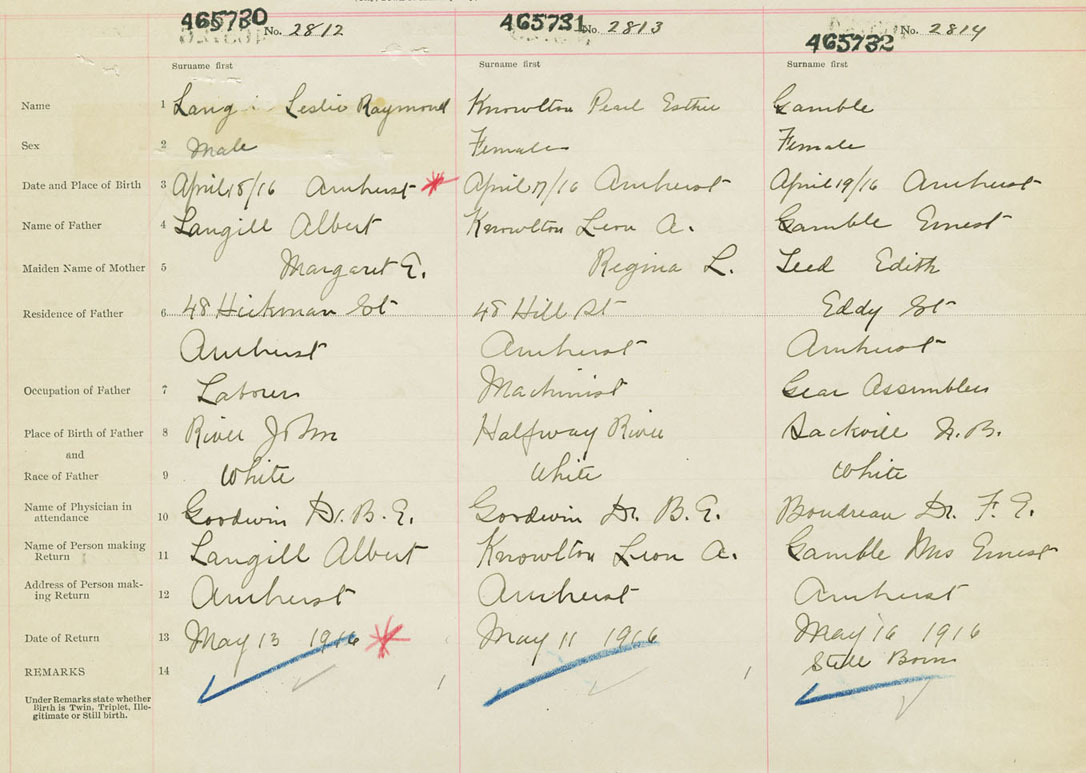 465730 No. 2812 465731 No. 2813 465732 No. 2814
Surname first Surname first Surname first
Name 1 Lang Leslie Raymond Knowlton Pearl Esther Gamble
Sex 2 Male Female Female
Date and Place of Birth 3 April 15/16 Amherst * April 17/16 Amherst April 19/16 Amherst
Name of Father 4 Langill Albert Knowlton Leon A. Gamble Ernest
Maiden Name of Mother 5 Margaret E. Regina L. Teed Edith
Residence of Father 6 48 Hickman St 48 Hill St Eddy St
Amherst Amherst Amherst
Occupation of Father 7 Laborer Machinist Gear Assembler
Place of Birth of Father 8 River John Halfway River Sackville N.B.
and
Race of Father 9 White White White
Name of Physician in
attendance 10 Goodwin Dr. B. E. Goodwin Dr. B. E. Boudreau Dr. F. E.
Name of Person making
Return 11 Langill Albert Knowlton Leon A. Gamble Mrs Ernest
Address of Person mak-
ing Return 12 Amherst Amherst Amherst
Date of Return 13 May 13 1916 * May 11 1916 May 16 1916
REMARKS 14 Still Born
Under Remarks state whether
Birth is Twin, Triplet, Ille-
gitimate or Still birth.